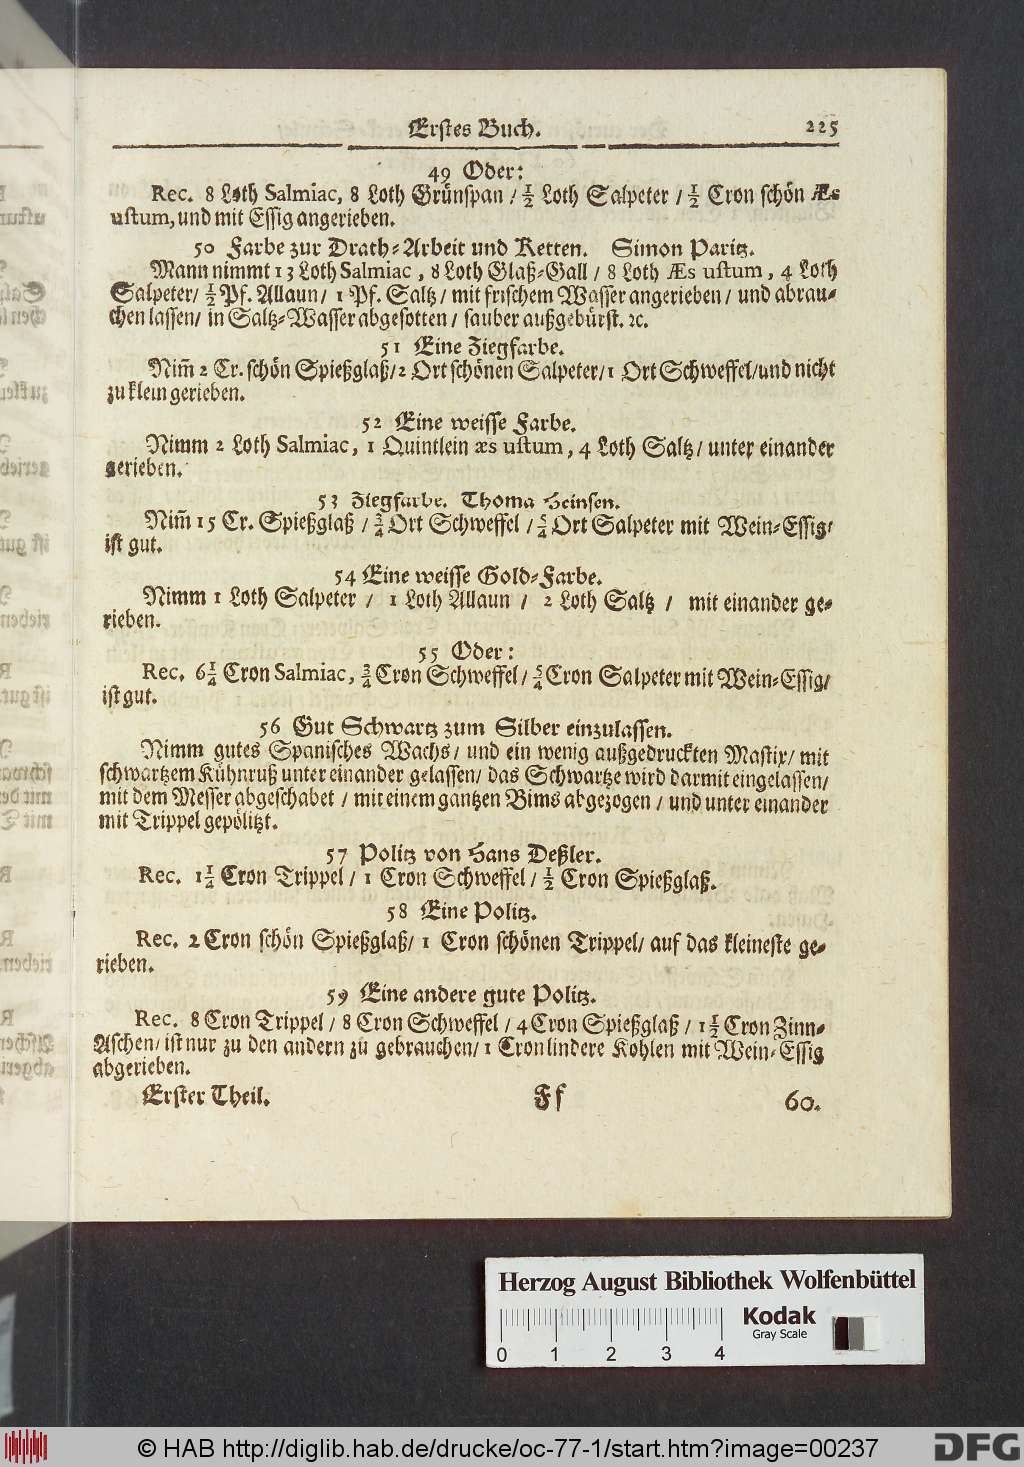 Erstes Buch. 225
49 Oder:
Rec. 8 Loth Salmiac, 8 Loth Grünspan / ½ Loth Salpeter / ½ Cron schön Æs
ustum, und mit Essig angerieben.
50 Farbe zur Drath-Arbeit und Ketten. Simon Paritz.
Mann nimmt 13 Loth Salmiac, 8 Loth Glaß-Gall / 8 Loth Æs ustum, 4 Loth
Salpeter/ ½ Pf. Allaun/ 1 Pf. Saltz/ mit frischem Wasser angerieben/ und abrau-
chen lassen/ in Saltz-Wasser abgesotten/ sauber außgebürst. ꝛc.
51 Eine Ziegfarbe.
Nim̃ 2 Cr. schön Spießglaß/2 Ort schönen Salpeter/1 Ort Schweffel/und nicht
zu klein gerieben.
52 Eine weisse Farbe.
Nimm 2 Loth Salmiac, 1 Quintlein æs ustum, 4 Loth Saltz/ unter einander
gerieben.
53 Ziegfarbe. Thoma Heinsen.
Nim̃ 15 Cr. Spießglaß / ¾ Ort Schweffel / 5/4 Ort Salpeter mit Wein-Essig/
ist gut.
54 Eine weisse Gold-Farbe.
Nimm 1 Loth Salpeter / 1 Loth Allaun / 2 Loth Saltz / mit einander ge-
rieben.
55 Oder:
Rec. 6¼ Cron Salmiac, ¾ Cron Schweffel/ 5/4 Cron Salpeter mit Wein-Essig/
ist gut.
56 Gut Schwartz zum Silber einzulassen.
Nimm gutes Spanisches Wachs/ und ein wenig außgedruckten Mastix/ mit
schwartzem Kühnruß unter einander gelassen/ das Schwartze wird darmit eingelassen/
mit dem Messer abgeschabet / mit einem gantzen Bims abgezogen / und unter einander
mit Trippel gepölitzt.
57 Politz von Hans Deßler.
Rec. 1¼ Cron Trippel/ 1 Cron Schweffel/ ½ Cron Spießglaß.
58 Eine Politz.
Rec. 2 Cron schön Spießglaß/ 1 Cron schönen Trippel/ auf das kleineste ge-
rieben.
59 Eine andere gute Politz.
Rec. 8 Cron Trippel / 8 Cron Schweffel / 4 Cron Spießglaß / 1½ Cron Zinn-
Aschen/ ist nur zu den andern zu gebrauchen/ 1 Cron lindere Kohlen mit Wein-Essig
abgerieben.
Erster Theil. Ff 60.
Herzog August Bibliothek Wolfenbüttel
Kodak
Gray Scale
0 1 2 3 4
© HAB http://diglib.hab.de/drucke/oc-77-1/start.htm?image=00237
DFG